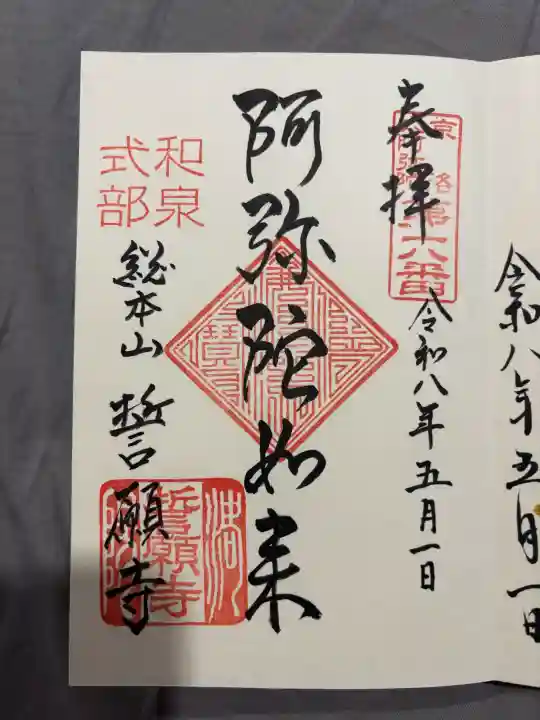 令和八年五月一日
奉拝
第十八番
令和八年五月一日
阿弥陀如来
和泉
式部
総本山 誓願寺
誓願寺